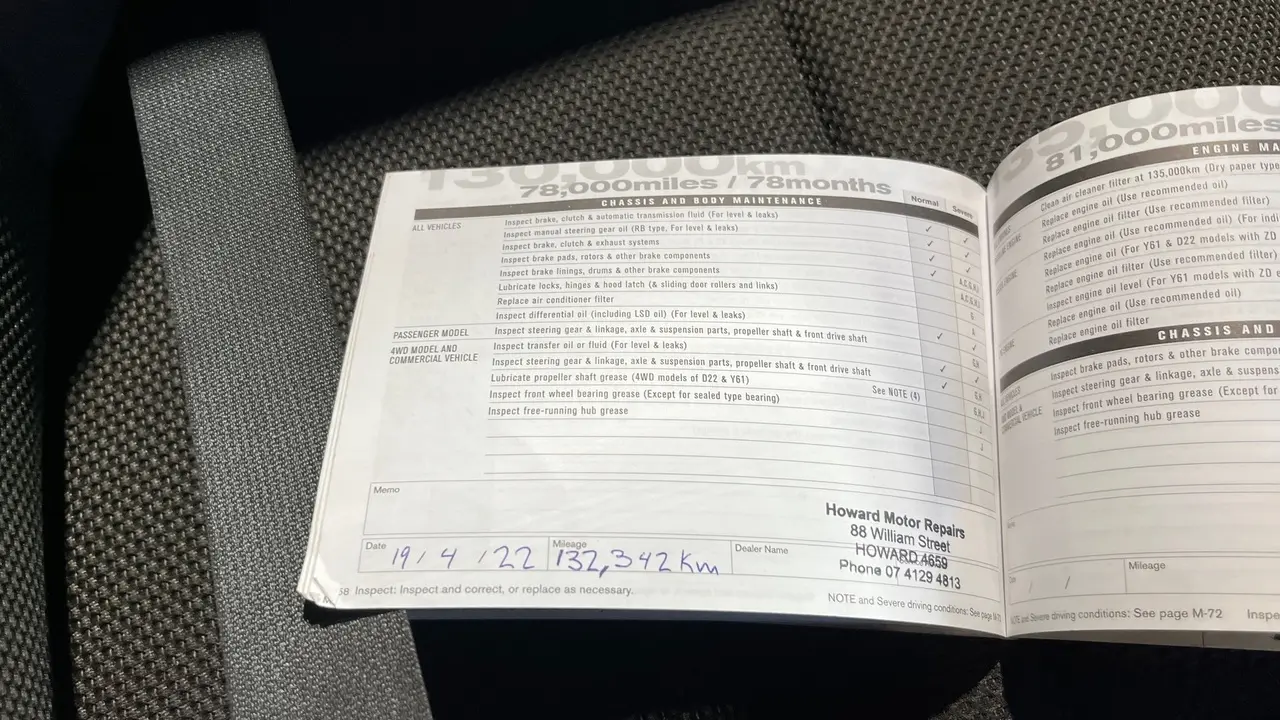 130,000km
78,000miles / 78months
CHASSIS AND BODY MAINTENANCE
Normal
Severe
ALL VEHICLES
Inspect brake, clutch & automatic transmission fluid (For level & leaks)
Inspect manual steering gear oil (RB type, For level & leaks)
Inspect brake, clutch & exhaust systems
Inspect brake pads, rotors & other brake components
Inspect brake linings, drums & other brake components
Lubricate locks, hinges & hood latch (& sliding door rollers and links)
Replace air conditioner filter
Inspect differential oil (including LSD oil) (For level & leaks)
PASSENGER MODEL
Inspect steering gear & linkage, axle & suspension parts, propeller shaft & front drive shaft
4WD MODEL AND
COMMERCIAL VEHICLE
Inspect transfer oil or fluid (For level & leaks)
Inspect steering gear & linkage, axle & suspension parts, propeller shaft & front drive shaft
Lubricate propeller shaft grease (4WD models of D22 & Y61)
Inspect front wheel bearing grease (Except for sealed type bearing) See NOTE (4)
Inspect free-running hub grease
Memo
Date 19/4/22
Mileage 132,342km
Dealer Name
Howard Motor Repairs
88 William Street
HOWARD 4659
Phone 07 4129 4813
58 Inspect: Inspect and correct, or replace as necessary.
NOTE and Severe driving conditions: See page
81,000miles
ENGINE MA
Clean air cleaner filter at 135,000km (Dry paper type
Replace engine oil (Use recommended oil)
Replace engine oil filter (Use recommended filter)
Replace engine oil (Use recommended oil) (For ind
Replace engine oil (For Y61 & D22 models with ZD
Replace engine oil filter (Use recommended filter)
Inspect engine oil level (For Y61 models with ZD
Replace engine oil (Use recommended oil)
Replace engine oil filter
CHASSIS AND
Inspect brake pads, rotors & other brake compo
Inspect steering gear & linkage, axle & suspens
Inspect front wheel bearing grease (Except for
Inspect free-running hub grease
/ /
Mileage
NOTE and Severe driving conditions: See page M-72
Inspe